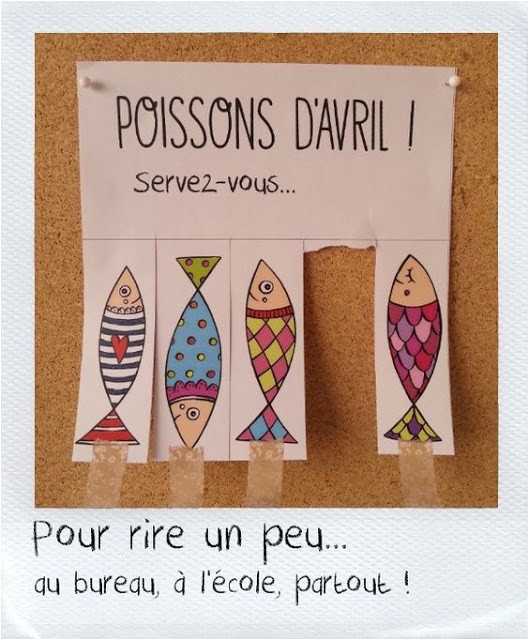 POISSONS D'AVRIL !
Servez-vous...
Pour rire un peu...
au bureau, à l'école, partout !